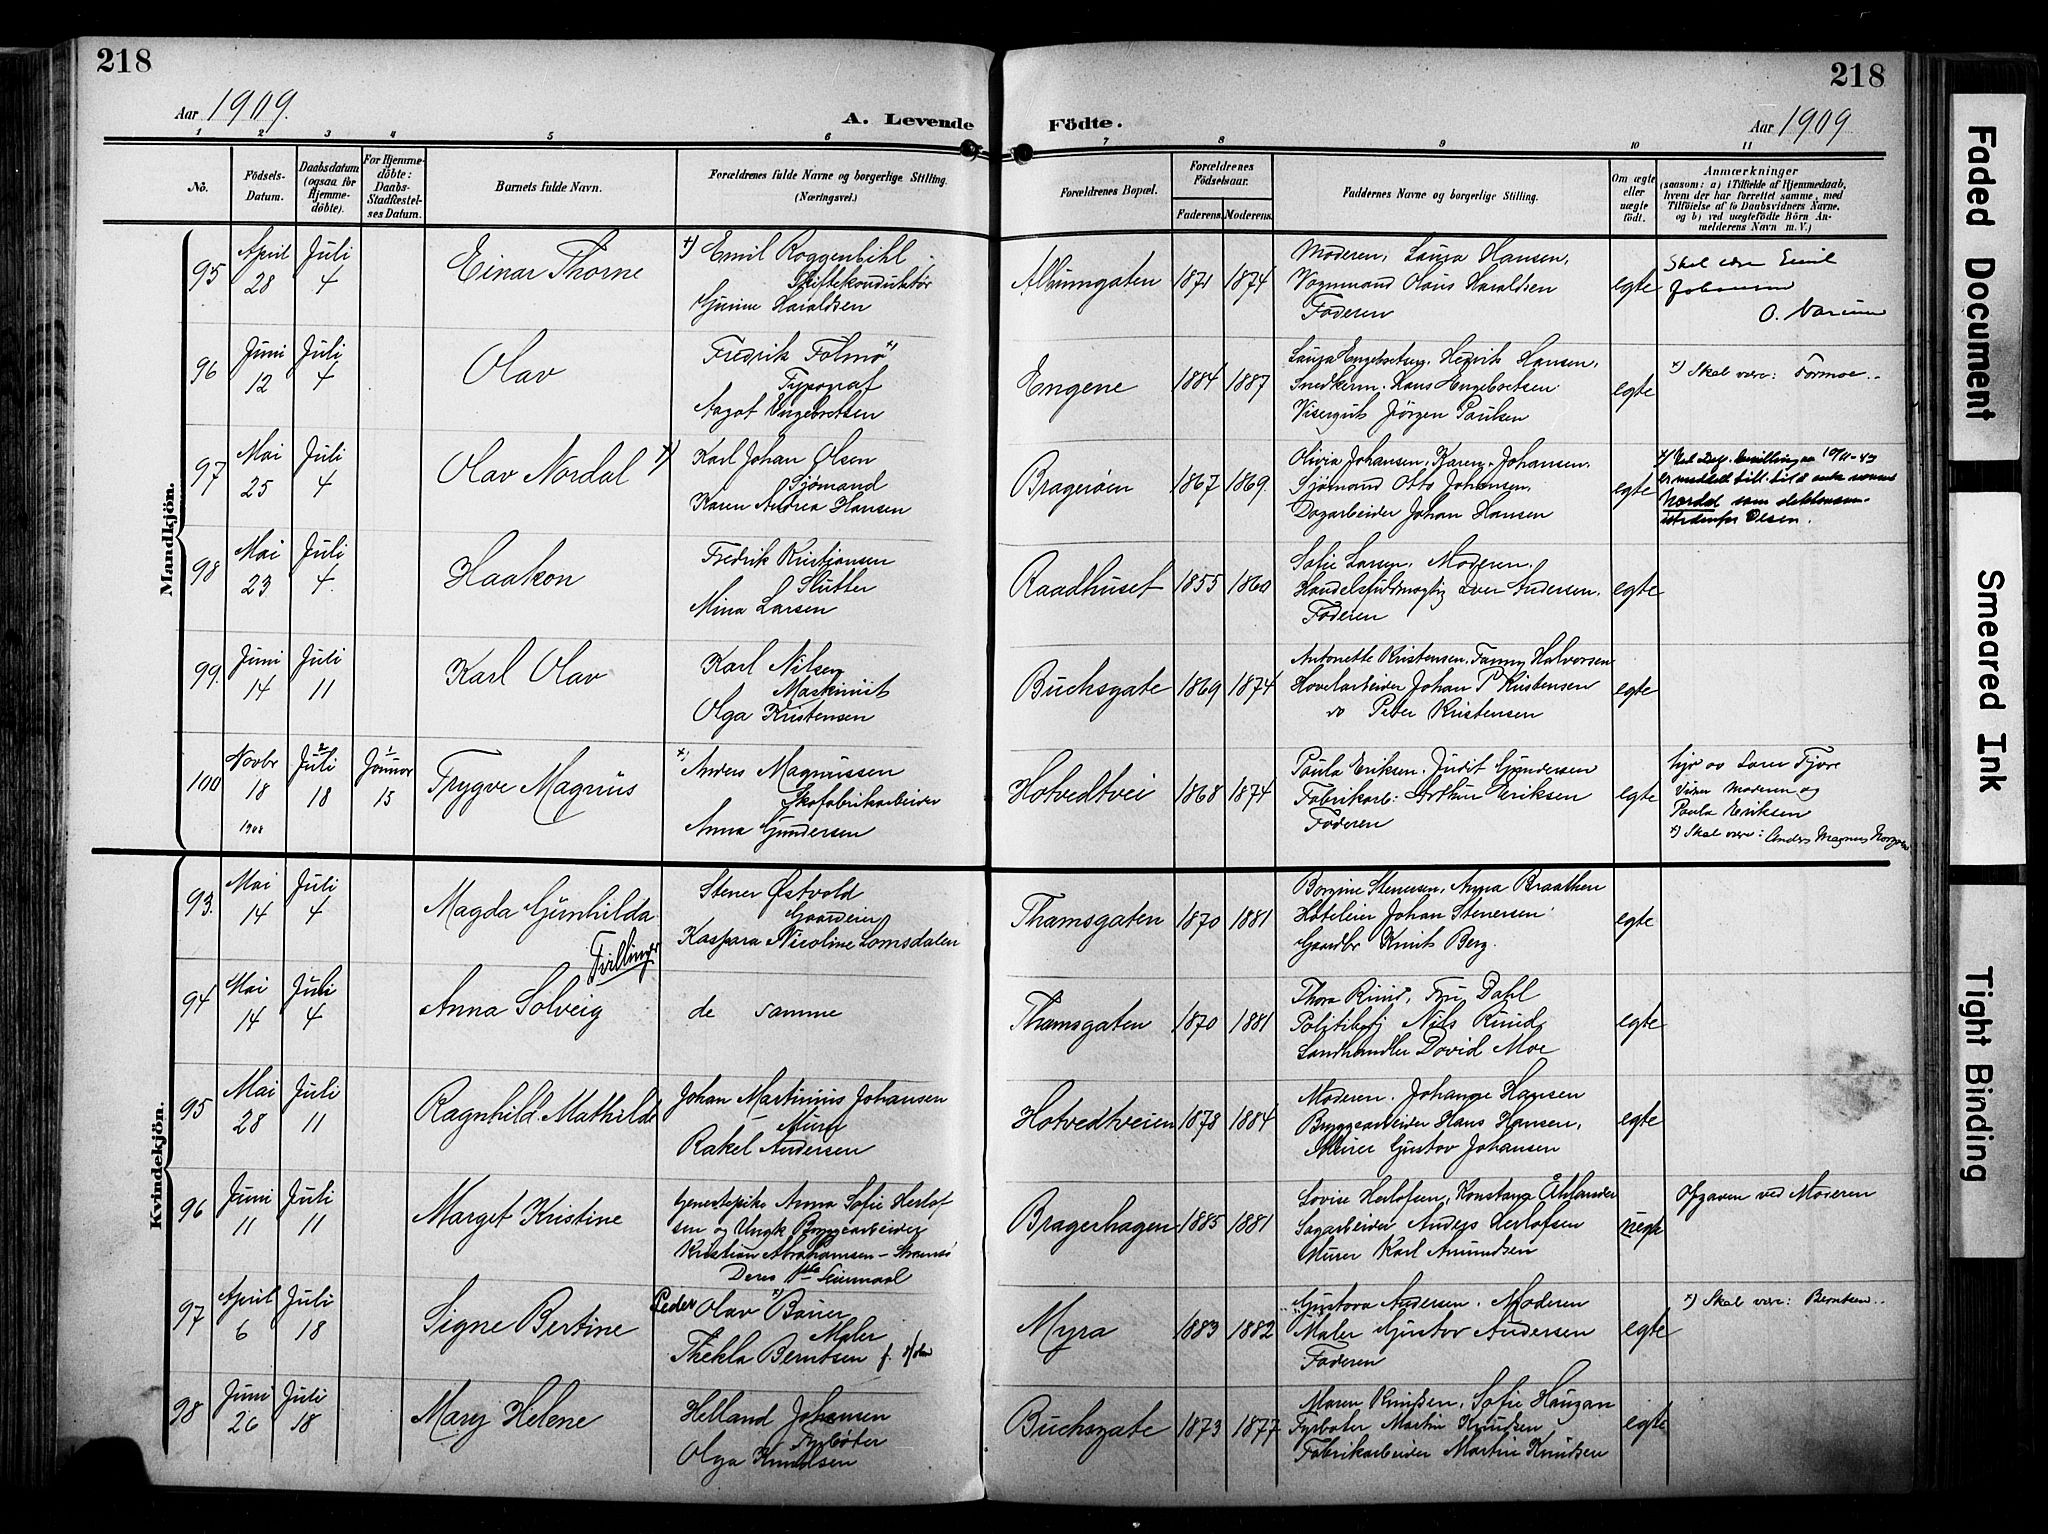 218
218
Aar 1909.
A. Levende
Födte.
Aar 1909
1 2 3 4 5 6 7 8 9 10 11
No.
Födsels-Datum.
Daabsdatum (ogsaa for Hjemmedöbte).
For Hjemmedöbte: Daabs-Stadfæstelses Datum.
Barnets fulde Navn.
Forældrenes fulde Navne og borgerlige Stilling. (Næringsvei.)
Forældrenes Bopæl.
Forældrenes Födselsaar.
Faderens. Moderens.
Faddernes Navne og borgerlige Stilling.
Om ægte eller uægte födt.
Anmærkninger
(saasom: a) i Tilfælde af Hjemmedaab, hvem der har forrettet samme, med Tilföielse af to Daabsvidners Navne. og b) ved uægtefödte Börn Anmelderens Navn m. V.)
Mandkjön.
95 April 28 Juli 4 Einar Thorne
+) Emil Roggenbihl
Skiftekonduktør
Gunine Haraldsen
Albumgaten 1871 1874
Moderen, Laura Hansen,
Vognmand Olaus Haraldsen
Faderen
egte
Skal være Emil
96 Juni 12 Juli 4 Olav
Fredrik Folmo x)
Typograf
Aagot Engebretsen
Engene 1884 1887
Laura Engebretsen, Henrik Hansen,
Snedkerm. Hans Engebretsen
Visergut Jörgen Paulsen
egte
x) Skal være: Formoe..
97 Mai 25 Juli 4 Olav Nordal x)
Karl Johan Olsen
Sjömand
Karen Andrea Hansen
Bragerøen 1867 1869
Olivia Johansen, Karen Johansen,
Sjömand Otto Johansen,
Dagarbeider Johan Hansen
egte
er meddelt till. til å anta navnet
Nordal som slektsnavn
istedenfor Olsen.
98 Mai 23 Juli 4. Haakon
Fredrik Kristiansen
Slutter
Mina Larsen
Raadhuset 1855 1860
Sofie Larsen, Moderen,
Handelsfuldmægtig Iver Andersen,
Faderen
egte
99. Juni 14 Juli 11 Karl Olav
Karl Nilsen
Maskinist
Olga Kristensen
Buchsgate 1869 1874
Antonette Kristensen, Fanny Halvorsen
Høvelarbeider Johan P Kristensen
do Peter Kristensen
egte
100 Novbr 18 1908 Juli 18 Januar 15 Trygve Magnus
x) Anders Magnussen
Skofabrikarbeider
Anna Gundersen
Hotvedtvei 1868 1874
Paula Eriksen, Judit Gundersen
Fabrikarb: Arthur Eriksen
Faderen
egte
Moderen og
Paula Eriksen
x) Skal være: Anders Magnus
Kvindekjön.
93. Mai 14 Juli 4 Magda Gunhilda
Tvillinger
Stener Østvold
Gaardeier
Kaspara Nicoline Lomsdalen
Thamsgaten 1870 1881
Borgine Stenersen, Anna Braathen
Hoteleier Johan Stenersen
Gaardbr Knut Berg.
egte
94 Mai 14 Juli 4 Anna Solveig
de samme
Thamsgaten 1870 1881
Fru Dahl
Nils Ruud,
Landhandler David Moe
egte
95 Mai 28 Juli 11 Ragnhild Mathilde
Johan Martinius Johansen
Murer
Rakel Andersen
Hotvedtveien 1878 1884
Moderen, Johanne Hansen
Bryggearbeider Hans Hansen,
Murer Gustav Johansen
egte
96 Juni 11 Juli 11 Marget Kristine
Anna Sofie Herlof
sen og Ungk Bryggearbeider
Kristian Abrahamsen – Strømsø
Deres
Bragerhagen 1885 1881
Lovise Herlofsen, Konstanse
Sagarbeider Anders Herlofsen
Murer Karl Amundsen
uegte
Opgaven ved Moderen
97 April 6 Juli 18 Signe Bertine
Peder Olav x) Bauer
Maler
Thekla Berntsen
Myra 1883 1882
Gustava Andersen, Moderen
Maler Gustav Andersen
Faderen
egte
x) Skal være: Berntsen..
98 Juni 26 Juli 18 Mary Helene
Helland Johansen
Fyrbøter
Olga Knudsen
Buchsgate 1873 1877
Maren Knudsen, Sofie Haugan
Fyrbøter Martin Knudsen
Fabrikarbeider Martin Knudsen
egte
Faded Document
Smeared Ink
Tight Binding